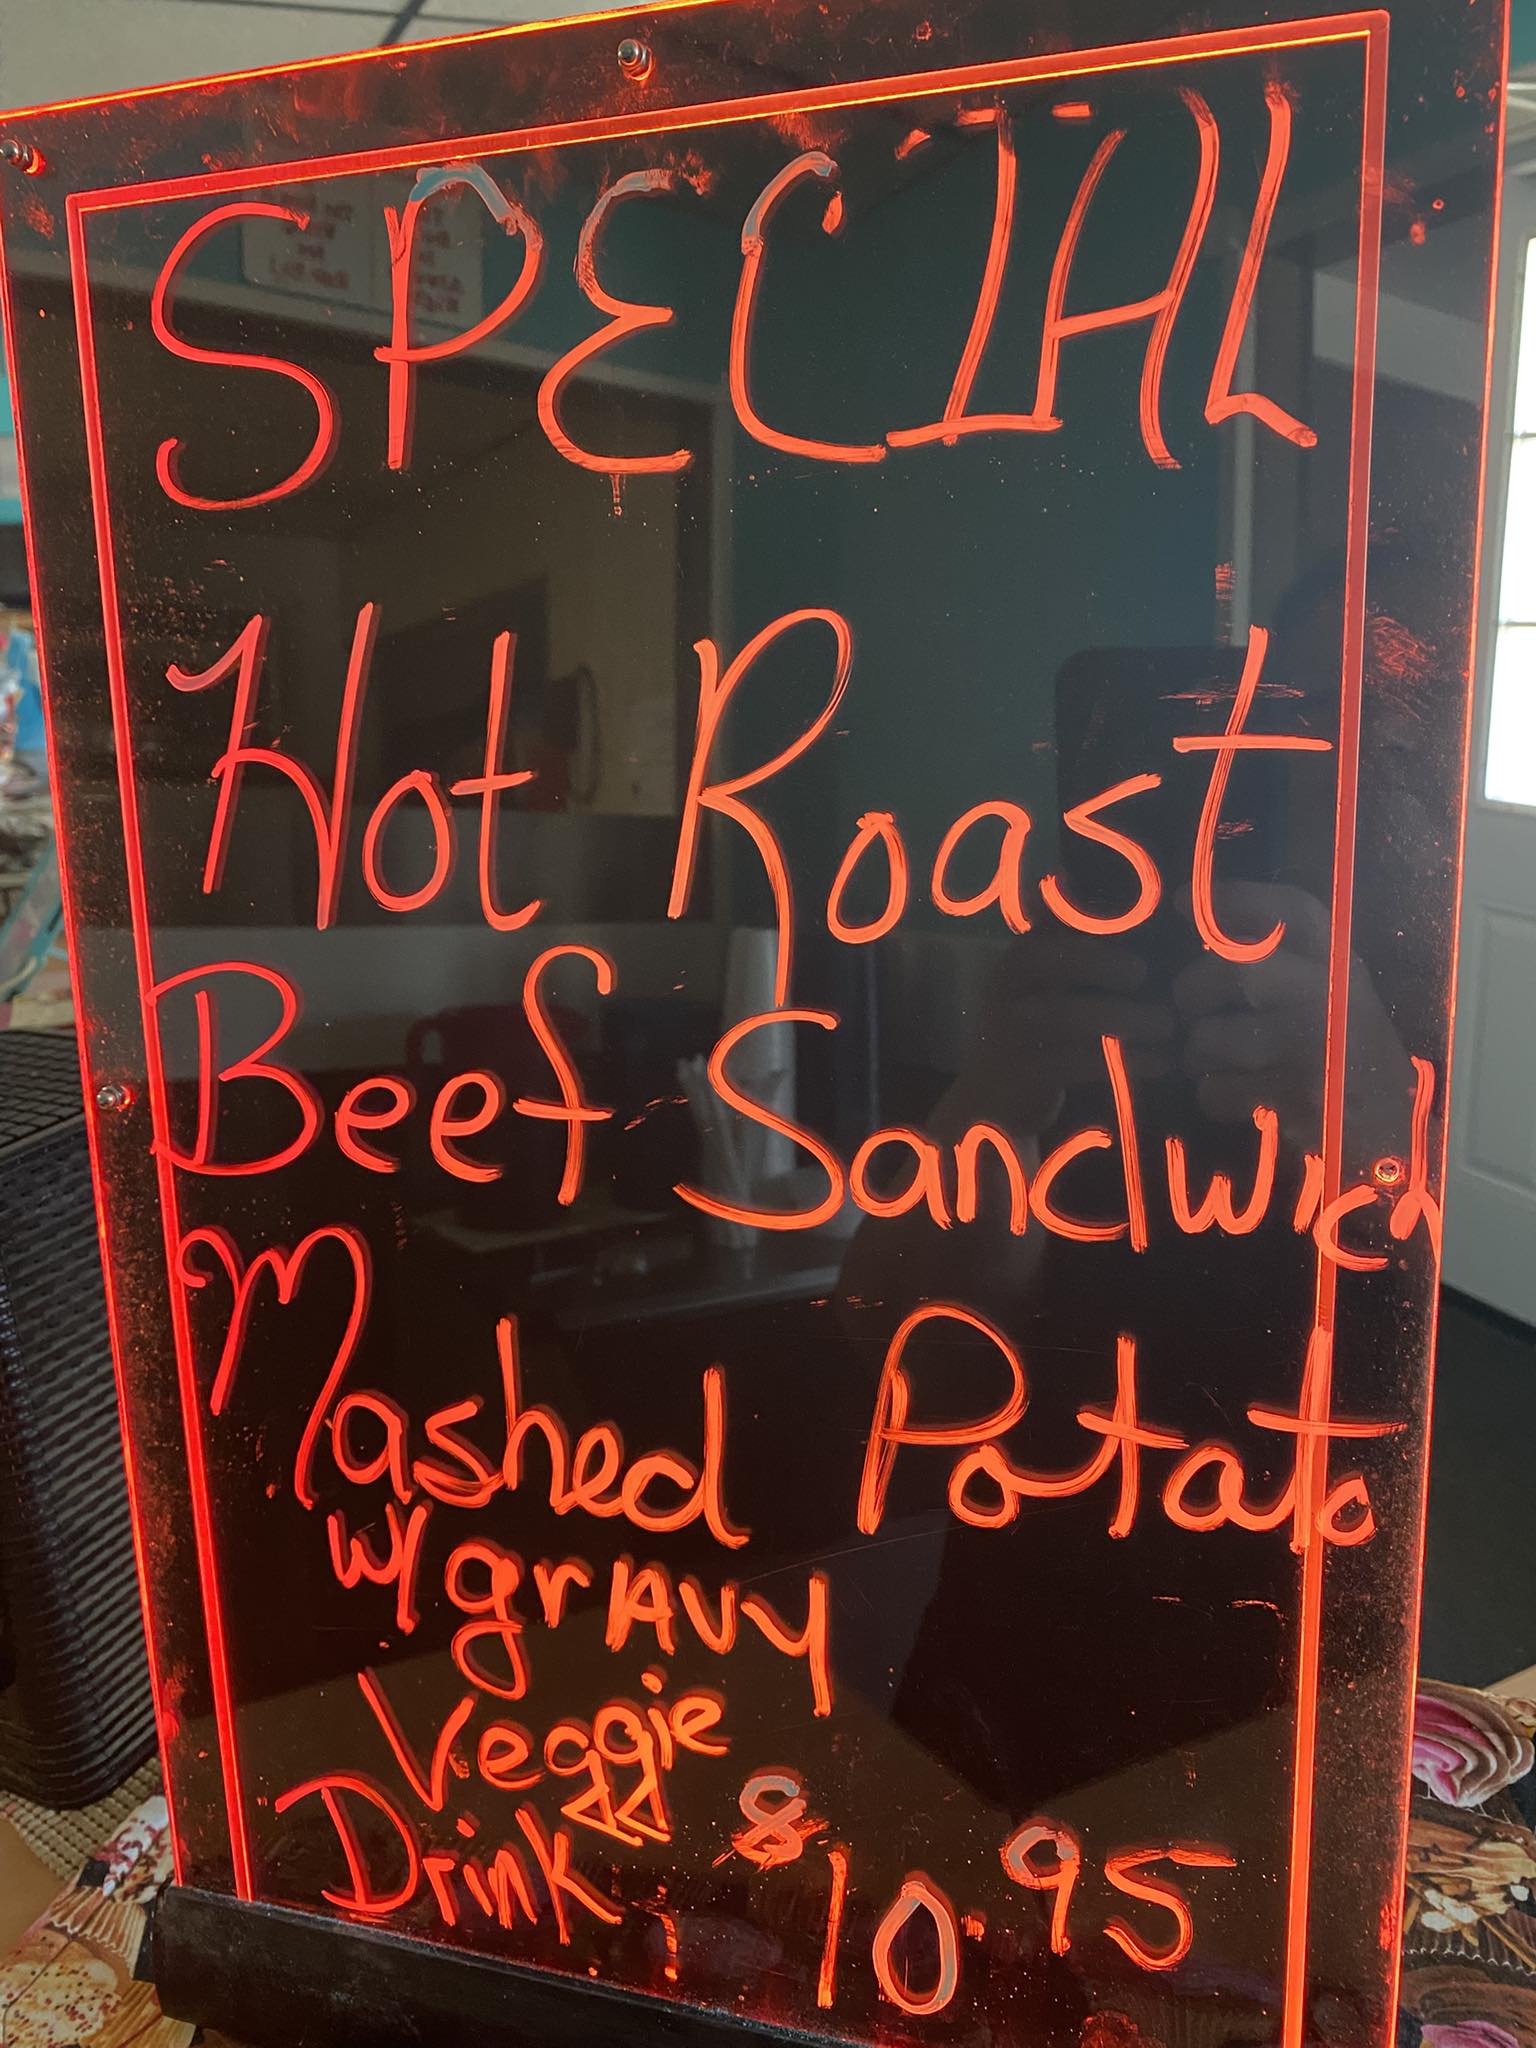 SPECIAL
Hot Roast
Beef Sandwich
Mashed Potato
w/ grAvy
Veggie
Drink $10.95